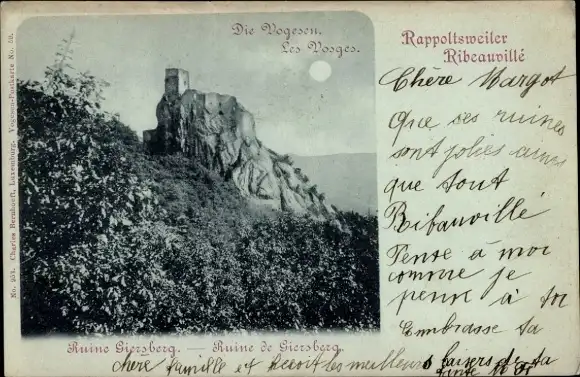 Die Vogesen.
Les Vosges.
Rappoltsweiler
Ribeauvillé
Chere Margot
Que ses ruines
sont jolies ainsi
que tout
Ribauvillé
Pense à moi
comme je
pense à toi
Embrasse ta
chère famille et recoit les meilleurs baisers de ta
Ruine Giersberg. — Ruine de Giersberg.
No. 953. Charles Bernhoeft, Luxemburg. Vogesen-Postkarte No. 59.